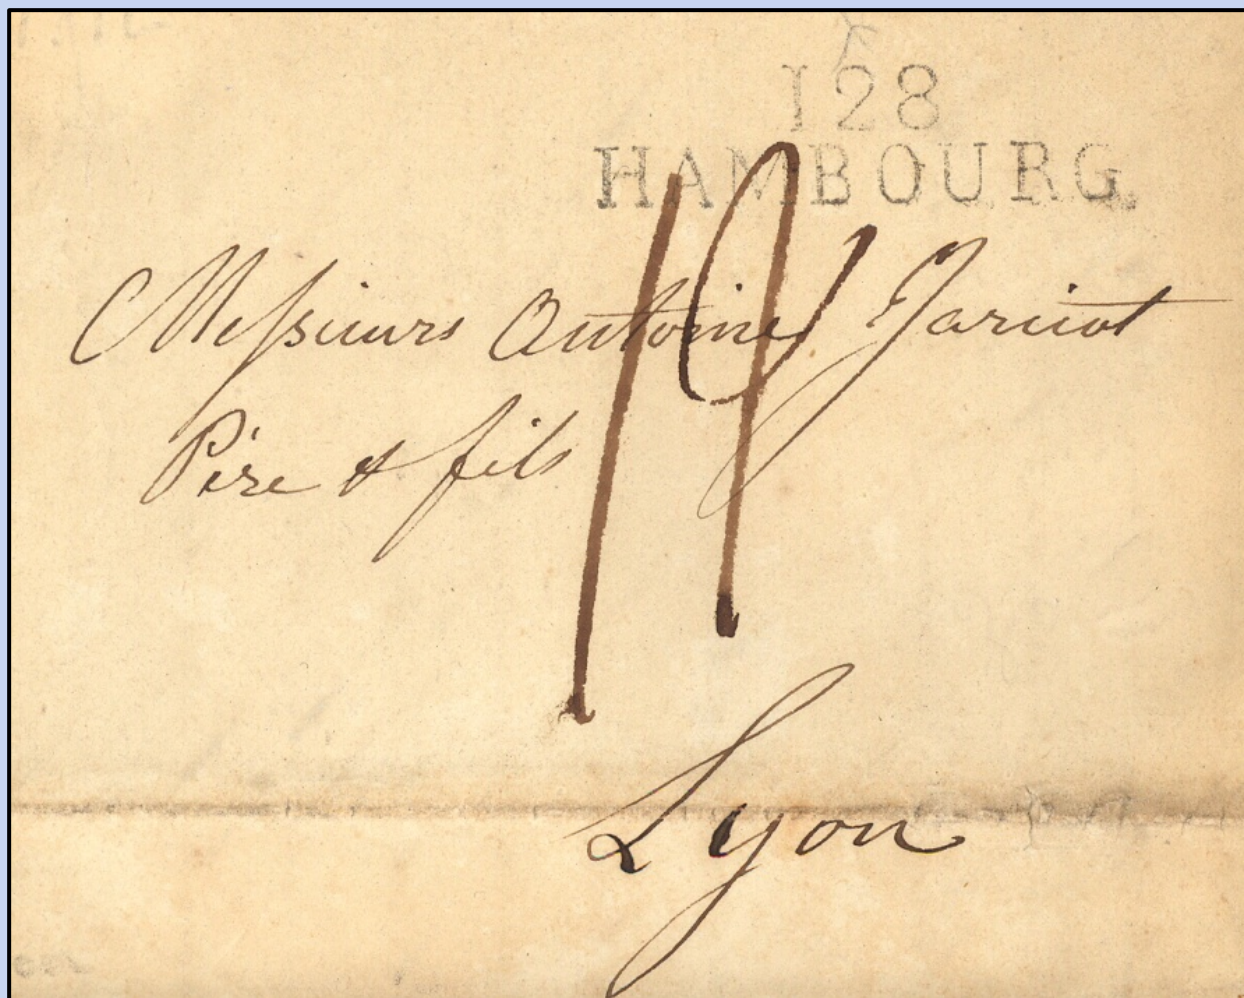 128
HAMBOURG
Messieurs Antoine Jaricot
Père & fils
19
Lyon